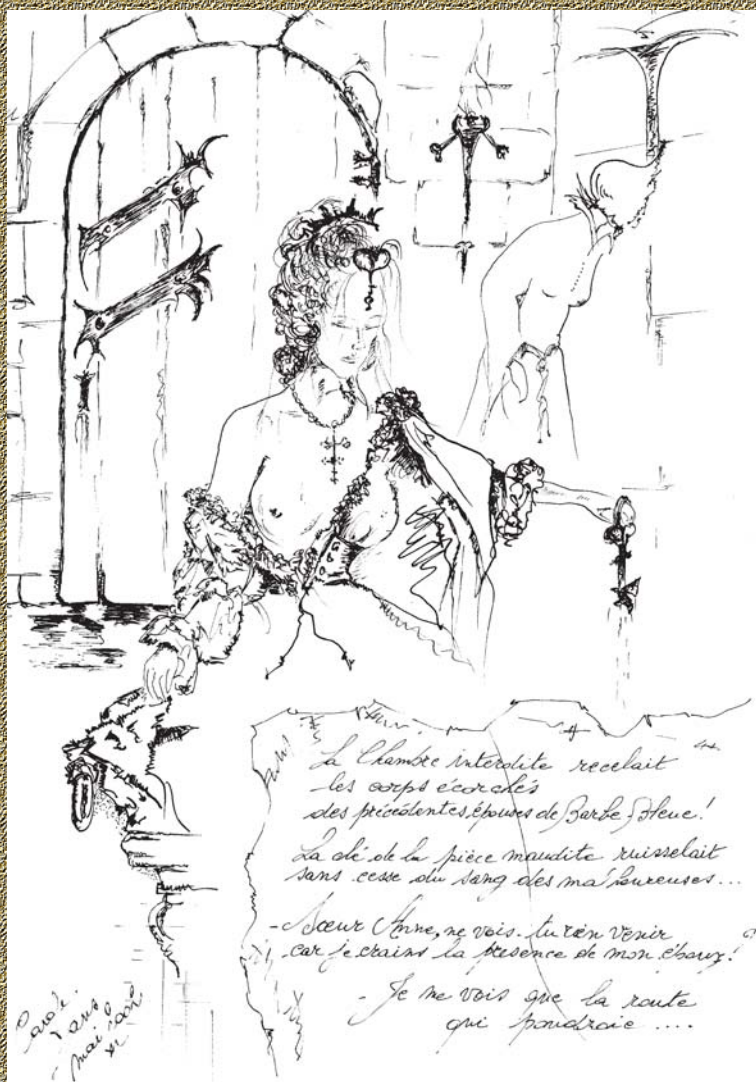 La Chambre interdite recelait
les corps écorchés
des précédentes épouses de Barbe Bleue!
La clé de la pièce maudite ruisselait
sans cesse du sang des malheureuses...
- Soeur Anne, ne vois-tu rien venir
car je crains la présence de mon époux!
- Je ne vois que la route
qui poudroie ....
Paris
mai